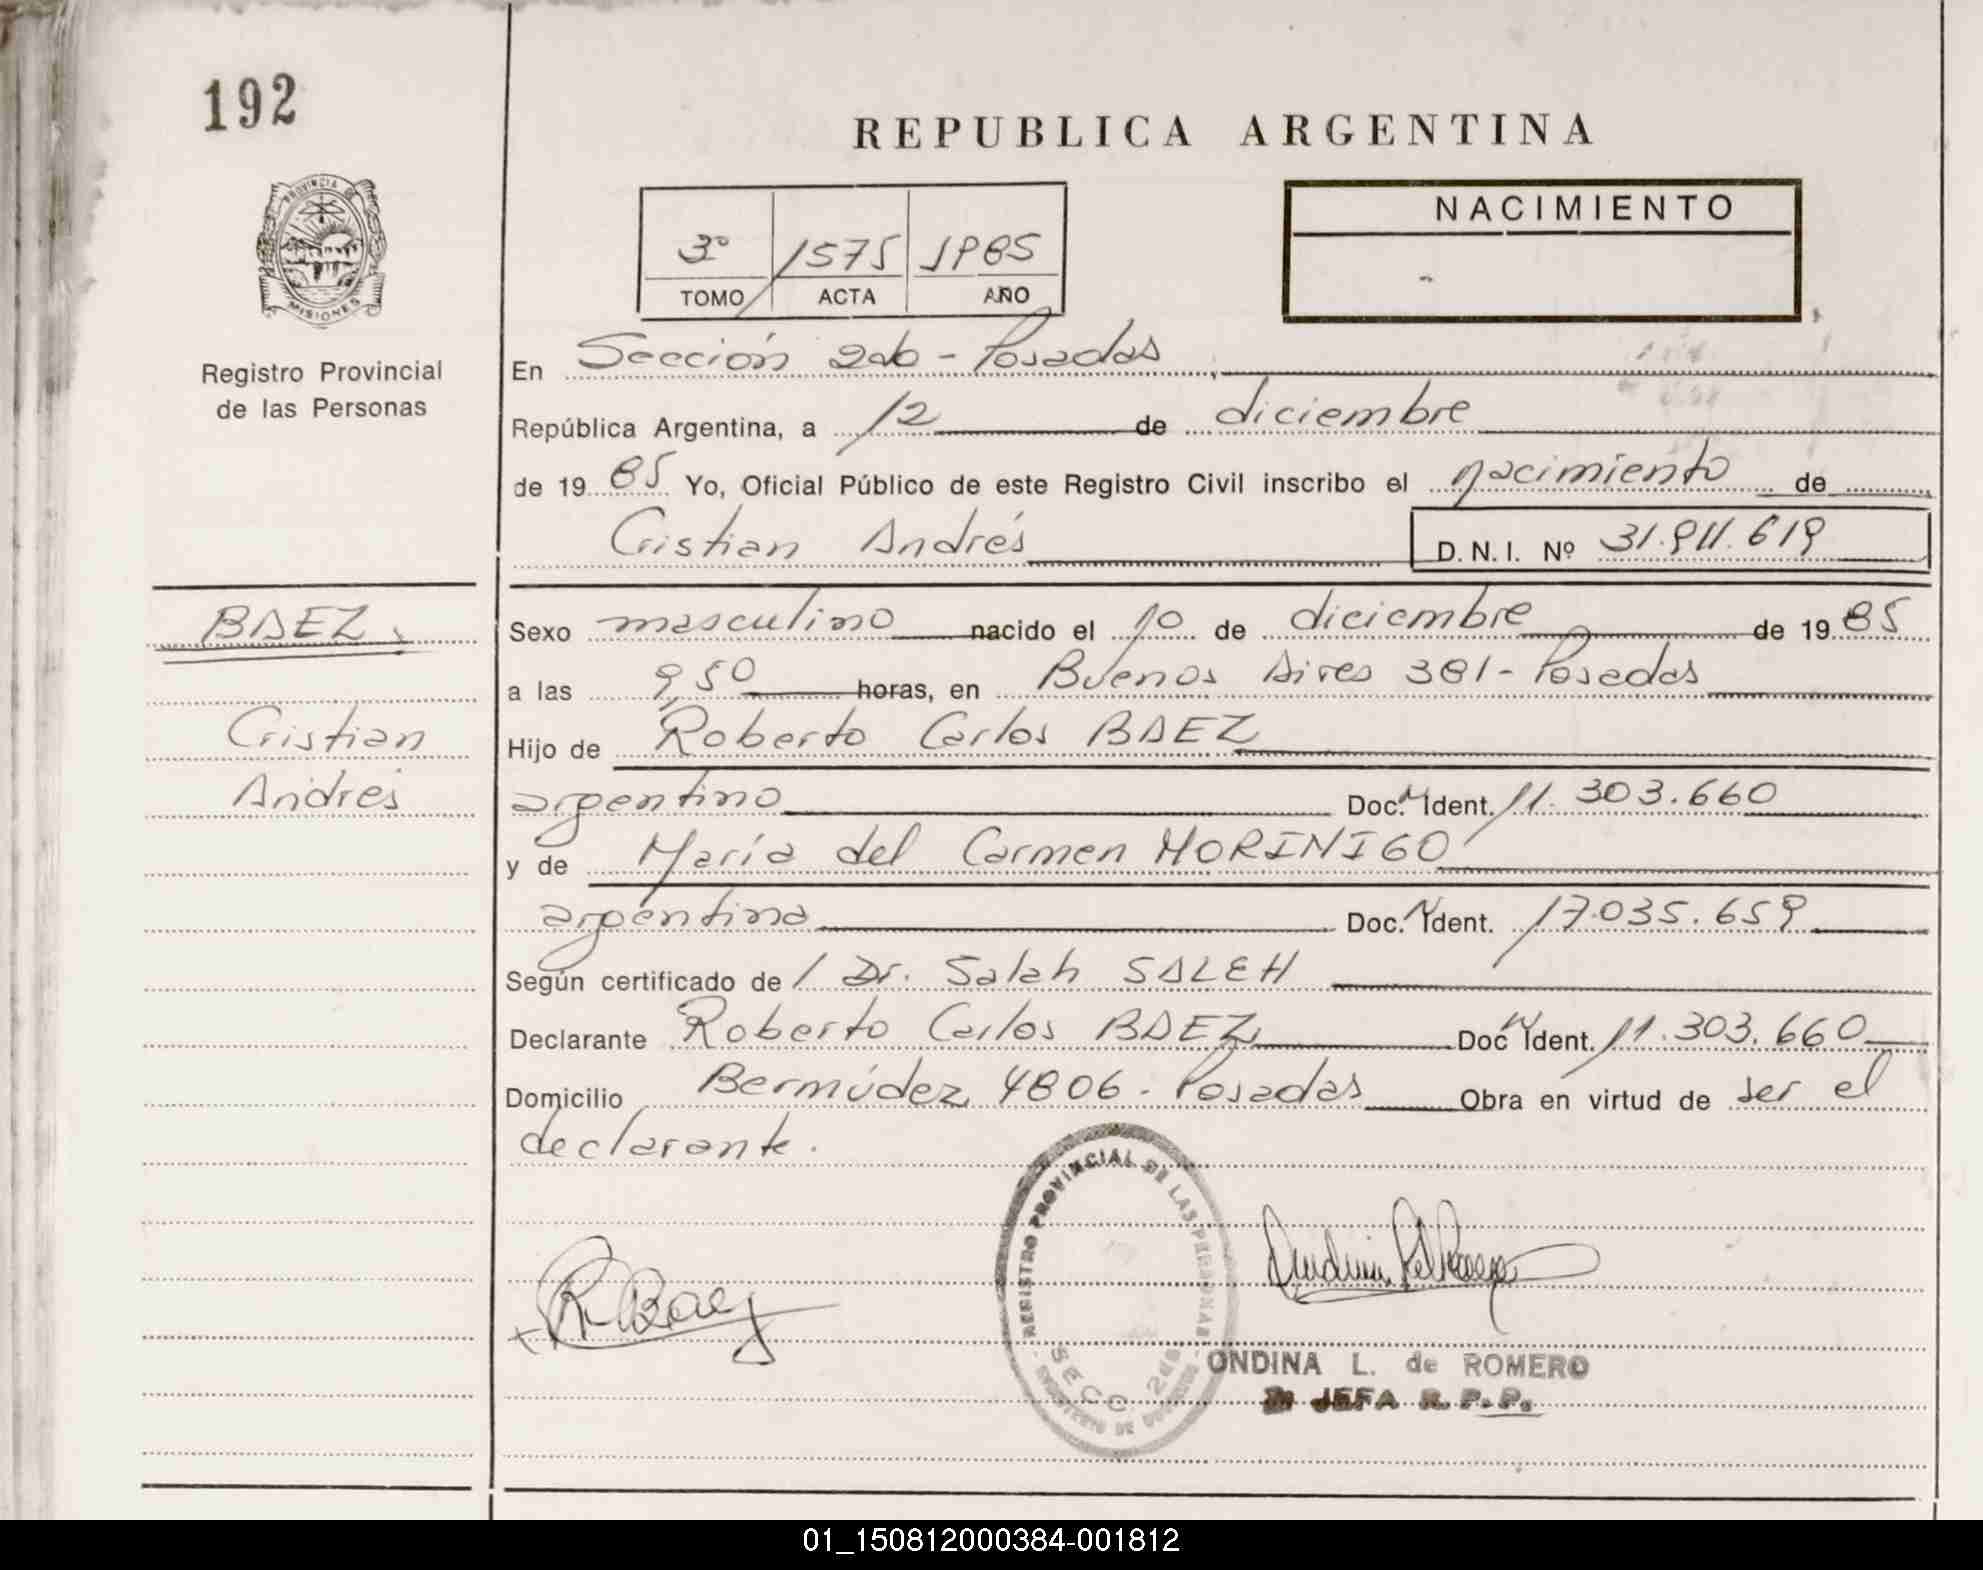 192
PROVINCIA DE
MISIONES
Registro Provincial
de las Personas
REPUBLICA ARGENTINA
3º 1575 1985
TOMO ACTA AÑO
NACIMIENTO
En Sección 2da - Posadas
República Argentina, a 12 de diciembre
de 1985 Yo, Oficial Público de este Registro Civil inscribo el nacimiento de
Cristian Andrés D.N.I. Nº 31.911.619
BAEZ
Cristian
Andrés
Sexo masculino nacido el 10 de diciembre de 1985
a las 9,50 horas, en Buenos Aires 381 - Posadas
Hijo de Roberto Carlos BAEZ
argentino Doc. N Ident. 11.303.660
y de María del Carmen MORINIGO
argentina Doc. N Ident. 17.035.659
Según certificado de Dr. Salah SALEH
Declarante Roberto Carlos BAEZ Doc N Ident. 11.303.660
Domicilio Bermúdez 4806 - Posadas Obra en virtud de ser el
declarante.
REGISTRO PROVINCIAL DE LAS PERSONAS
SECC. 2da
R. Baez
ONDINA L. de ROMERO
JEFA R. P. P.
01_150812000384-001812